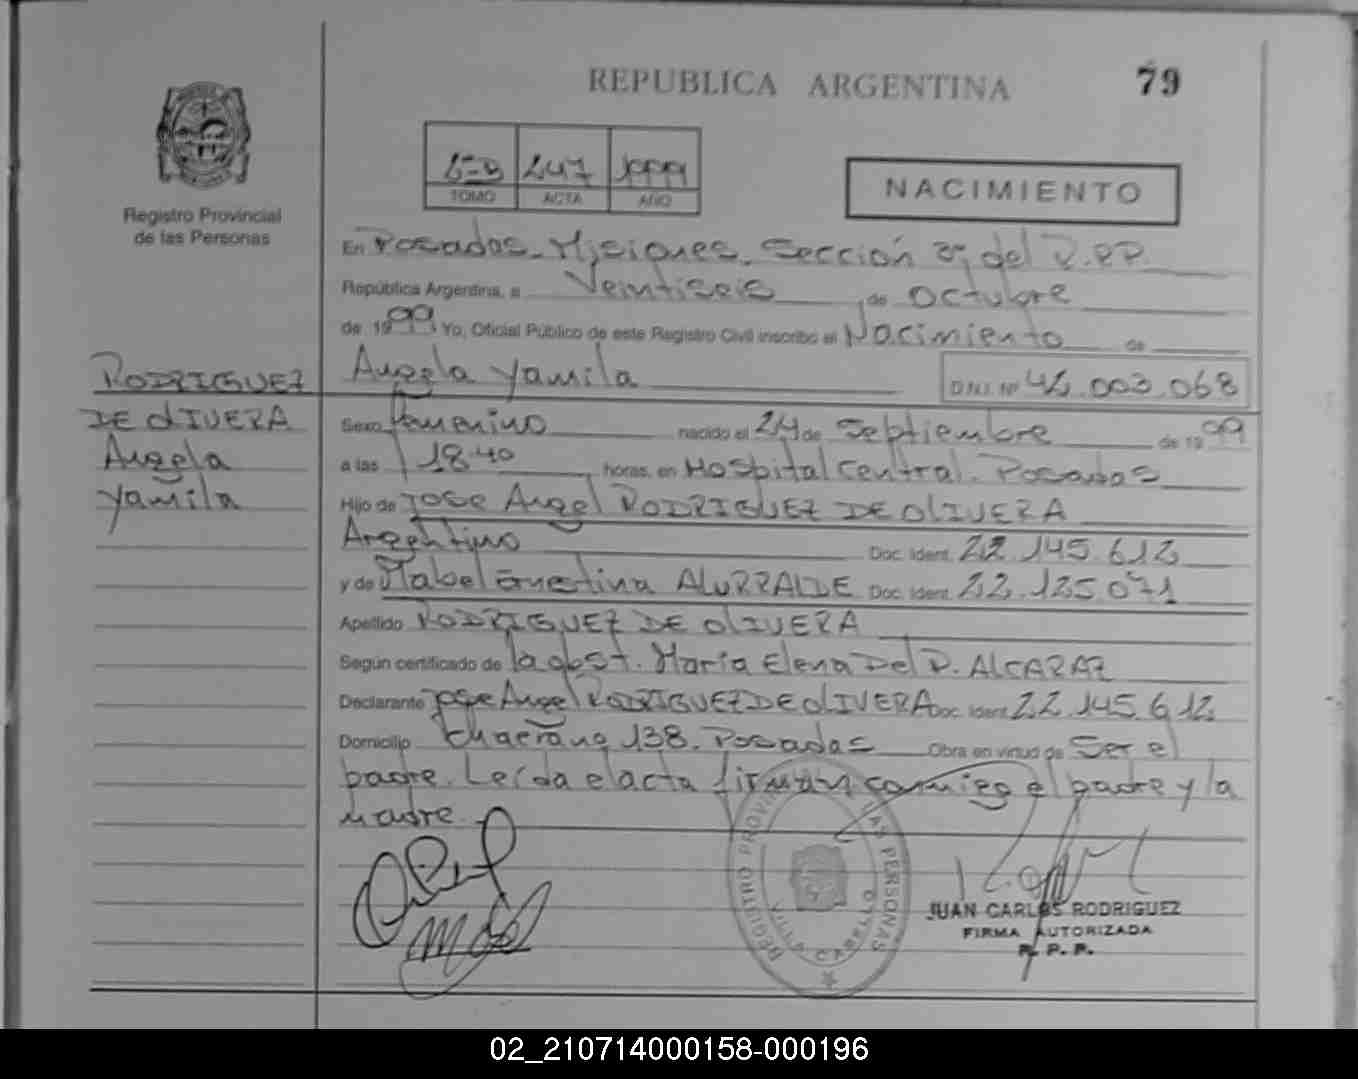 REPUBLICA ARGENTINA 79
247 1999
TOMO ACTA AÑO
NACIMIENTO
Registro Provincial
de las Personas
En Posadas - Misiones. Sección 3ª del R.P.P.
República Argentina, a Veintiseis de Octubre
de 1999 Yo, Oficial Público de este Registro Civil inscribo el Nacimiento de
Angela Yamila D.N.I. Nº 42.003.068
RODRIGUEZ
DE OLIVERA
Angela
Yamila
Sexo femenino nacido el 24 de Septiembre de 1999
a las 18:40 horas, en Hospital Central. Posadas
Hijo de Jose Angel RODRIGUEZ DE OLIVERA
Argentino Doc. Ident. 22.145.612
y de Mabel Ernestina ALURRALDE Doc. Ident. 22.125.071
Apellido RODRIGUEZ DE OLIVERA
Según certificado de la obst. Maria Elena Del P. ALCARAZ
Declarante Jose Angel RODRIGUEZ DE OLIVERA Doc. Ident. 22.145.612
Domicilio 138. Posadas Obra en virtud de Ser el
padre. Leída el acta firman conmigo el padre y la
madre.
REGISTRO PROVINCIAL DE LAS PERSONAS
VILLA CABELLO
JUAN CARLOS RODRIGUEZ
FIRMA AUTORIZADA
R. P. P.
02_210714000158-000196